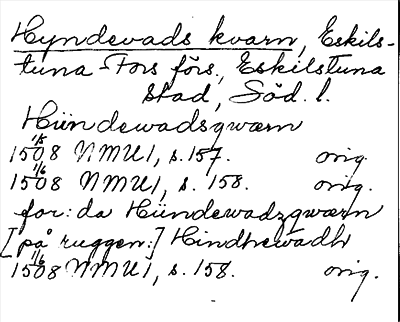 Hyndevads kvarn, Eskils-
tuna-Fors förs., Eskilstuna
stad, Söd. l.
Hündewadsqwærn
1/5 1508 NMU 1, s. 157. orig.
1/6 1508 NMU 1, s. 158. orig.
for:da Hündewadzqwærn
[på ryggen:] Hindhewadh
1/6 1508 NMU 1, s. 158. orig.